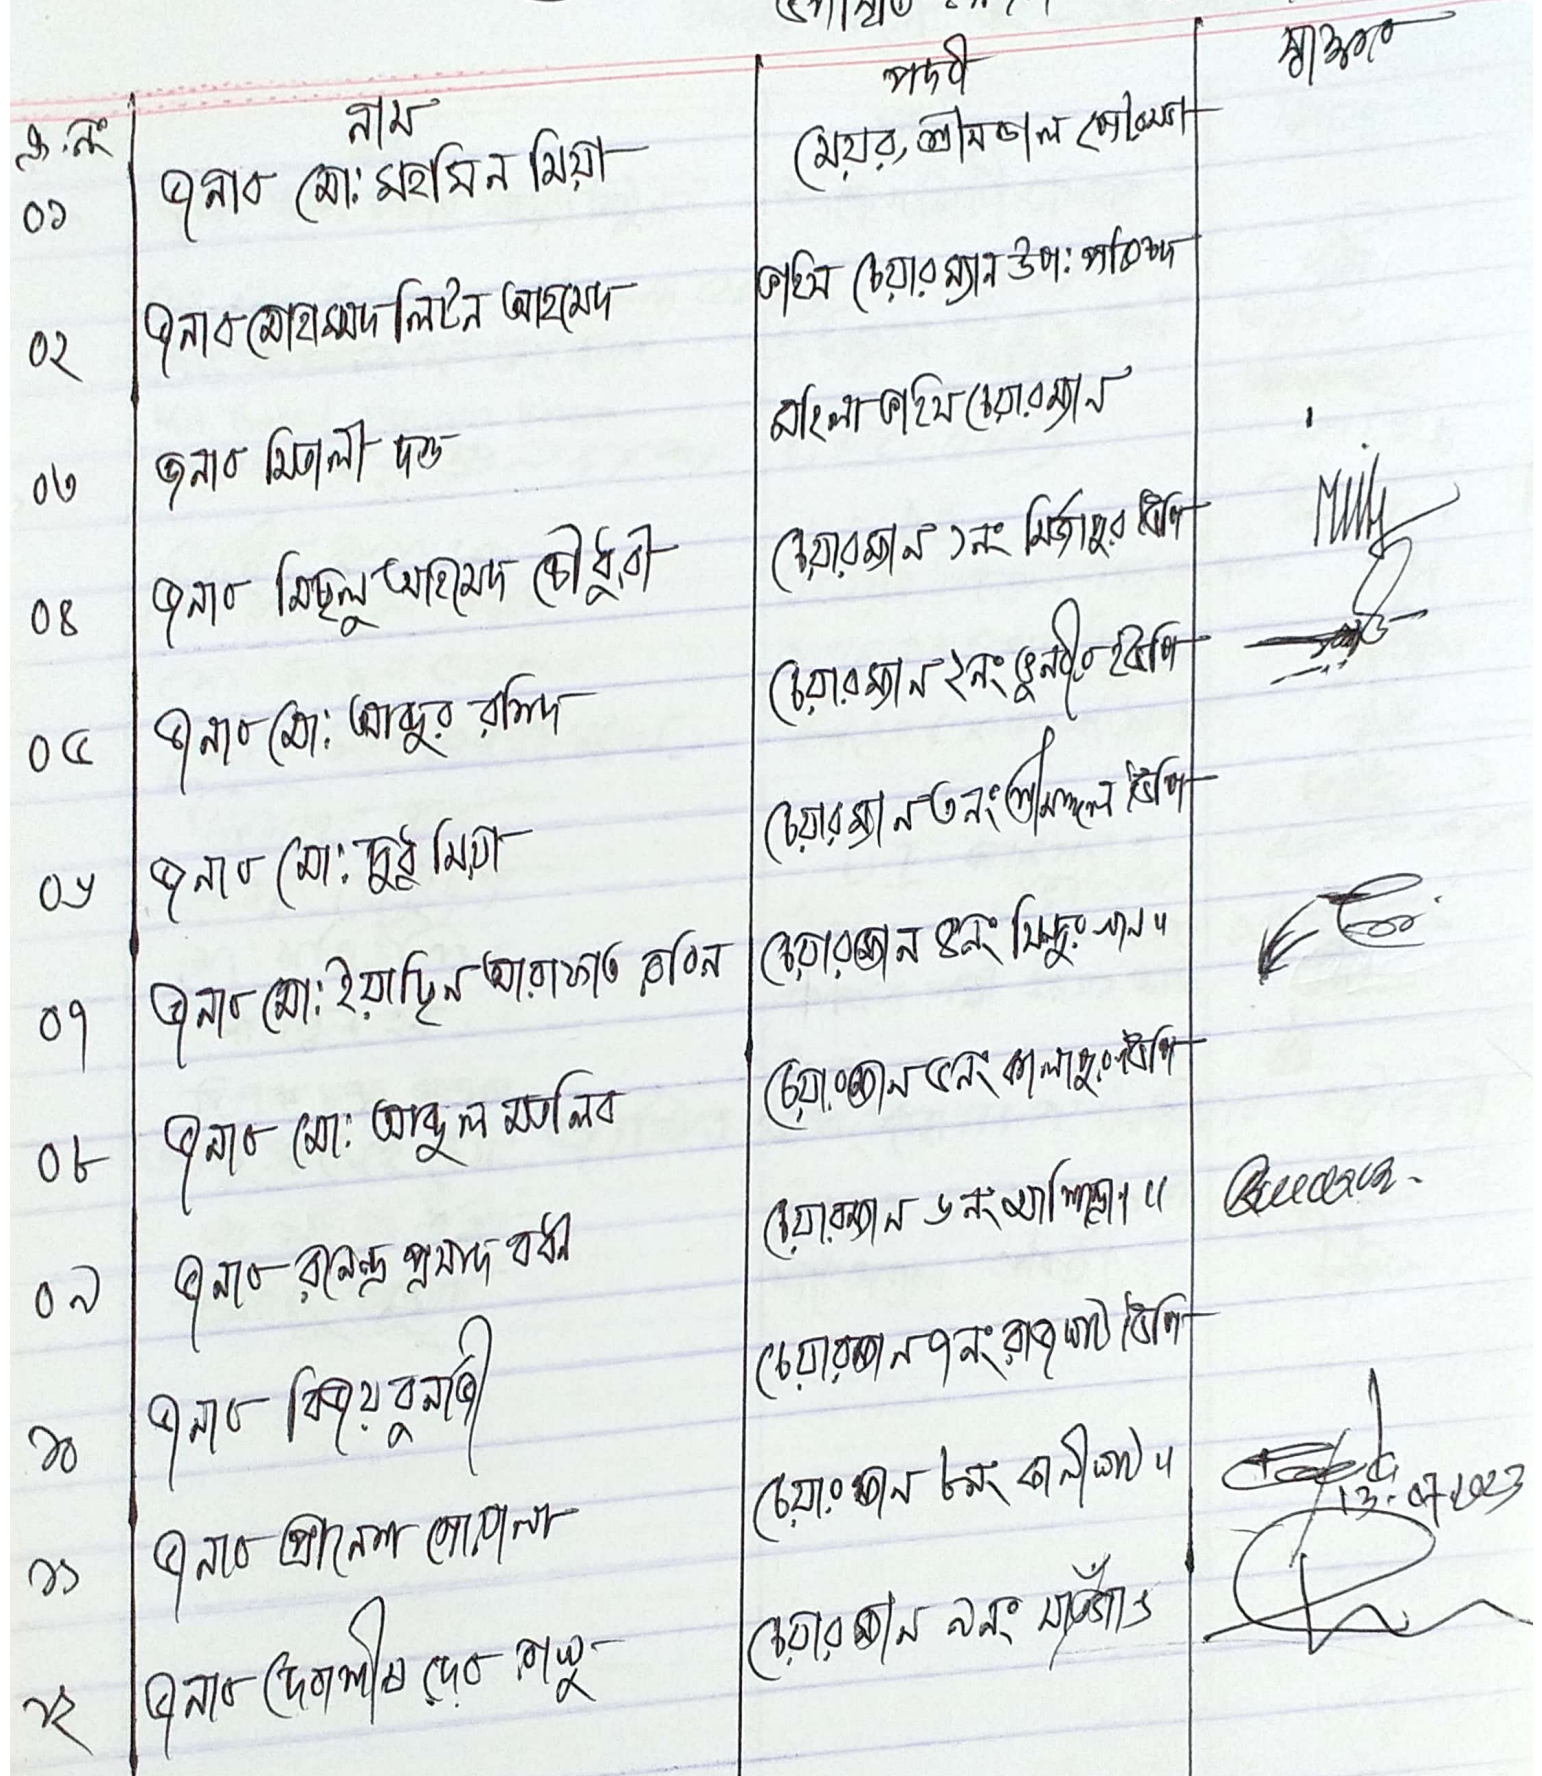 ক্র.নং নাম পদবী স্বাক্ষর
০১ জনাব মো: মহসিন মিয়া মেয়র, শ্রীমঙ্গল পৌরসভা
০২ জনাব মোহাম্মদ লিটন আহমেদ ভাইস চেয়ারম্যান উপ: পরিষদ
০৩ জনাব মিতালী দত্ত মহিলা ভাইস চেয়ারম্যান
০৪ জনাব মিছলু আহমেদ চৌধুরী চেয়ারম্যান ১নং মির্জাপুর ইউপি
০৫ জনাব মো: আব্দুর রশিদ চেয়ারম্যান ২নং ভূনবীর ইউপি
০৬ জনাব মো: দুদু মিয়া চেয়ারম্যান ৩নং শ্রীমঙ্গল ইউপি
০৭ জনাব মো: ইয়াছিন আরাফাত রবিন চেয়ারম্যান ৪নং সিন্দুরখান "
০৮ জনাব মো: আব্দুল মতলিব চেয়ারম্যান ৫নং কালাপুর ইউপি
০৯ জনাব রনেন্দ্র প্রসাদ বর্ধন চেয়ারম্যান ৬নং আশিদ্রোন "
১০ জনাব বিজয় বুনার্জী চেয়ারম্যান ৭নং রাজঘাট ইউপি
১১ জনাব প্রানেশ গোয়ালা চেয়ারম্যান ৮নং কালীঘাট " 13.07.2023
১২ জনাব দেবাশীষ দেব রাখু চেয়ারম্যান ৯নং সাতগাঁও